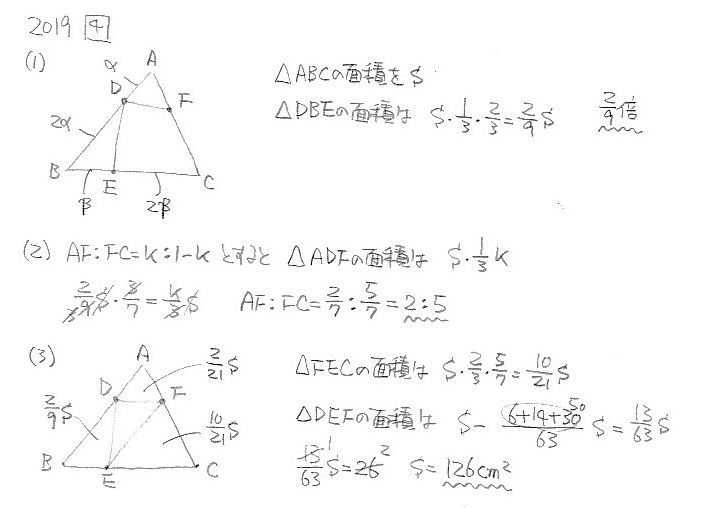 2019 4
(1)
A
α
D
F
2α
B
E
C
β
2β
△ABCの面積をS
△DBEの面積は S・1/3・2/3=2/9S 2/9倍
(2) AF:FC=k:1-kとすると △ADFの面積は S・1/3k
2/9S・3/7=k/3S AF:FC=2/7:5/7=2:5
(3)
A
2/21S
D
F
2/9S
10/21S
B
E
C
△FECの面積は S・2/3・5/7=10/21S
△DEFの面積は S-(6+14+30)/63S=13/63S
50
13/63S=26 S=126cm²
1 2